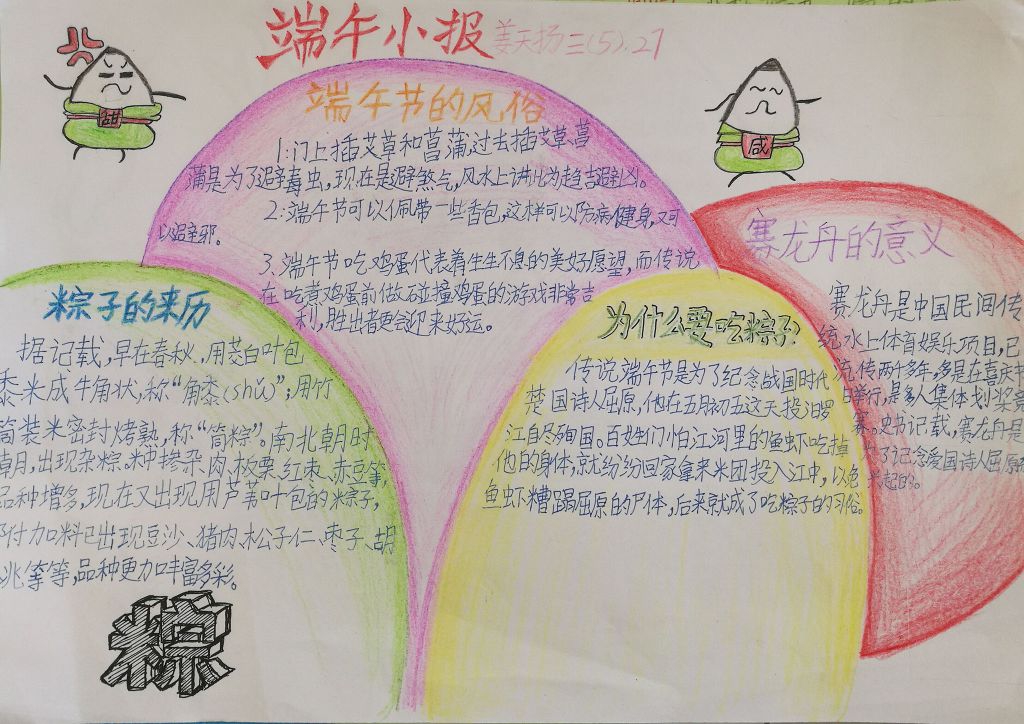 端午小报 姜天扬 三(5).27
甜
咸
端午节的风俗
1.门上插艾草和菖蒲,过去插艾草、菖
蒲是为了避毒虫,现在是避煞气,风水上讲比为趋吉避凶。
2.端午节可以佩带一些香包,这样可以防病健身,又可
以避邪。
3.端午节吃鸡蛋代表着生生不息的美好愿望,而传说
在吃煮鸡蛋前做碰撞鸡蛋的游戏非常吉
利,胜出者更会迎来好运。
粽子的来历
据记载,早在春秋、用茭白叶包
黍米成牛角状,称“角黍(shǔ)”;用竹
筒装米密封烤熟,称“筒粽”。南北朝时
朝,出现杂粽.米中掺杂肉、板栗、红枣、赤豆等,
品种增多,现在又出现用芦苇叶包的粽子,
附加料已出现豆沙、猪肉、松子仁、枣子、胡
兆等等,品种更加丰富多彩。
粽
为什么要吃粽子?
传说,端午节是为了纪念战国时代
楚国诗人屈原,他在五月初五这天投汨罗
江自尽殉国。百姓们怕江河里的鱼虾吃掉
他的身体,就纷纷回家拿来米团投入江中,以免
鱼虾糟蹋屈原的尸体,后来就成了吃粽子的习俗。
赛龙舟的意义
赛龙舟是中国民间传
统水上体育娱乐项目,已
流传两千多年,多是在喜庆节
日举行,是多人集体划桨竞
赛。史书记载,赛龙舟是
为了记念爱国诗人屈原而
起的。